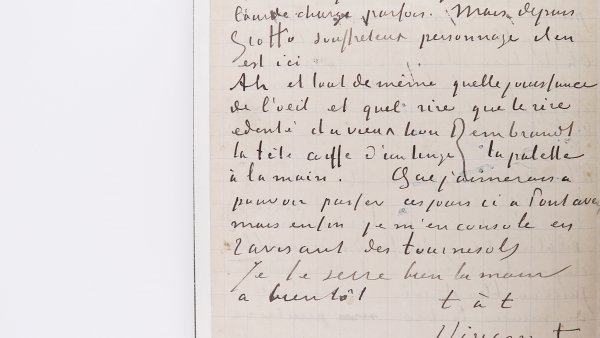 de charge parfois. Mais depuis
Giotto souffreteux personnage il en
est ici
Ah et tout de même quelle jouissance
de l'oeil et quel rire que le rire
edenté du vieux lion Rembrandt
la tête coiffe d'un linge la palette
à la main. Que j'aimerais à
pouvoir passer ces jours ci à Pontaven
mais enfin je m'en console en
ravisant des tournesols
Je te serre bien la main
a bientôt t à t
Vincent